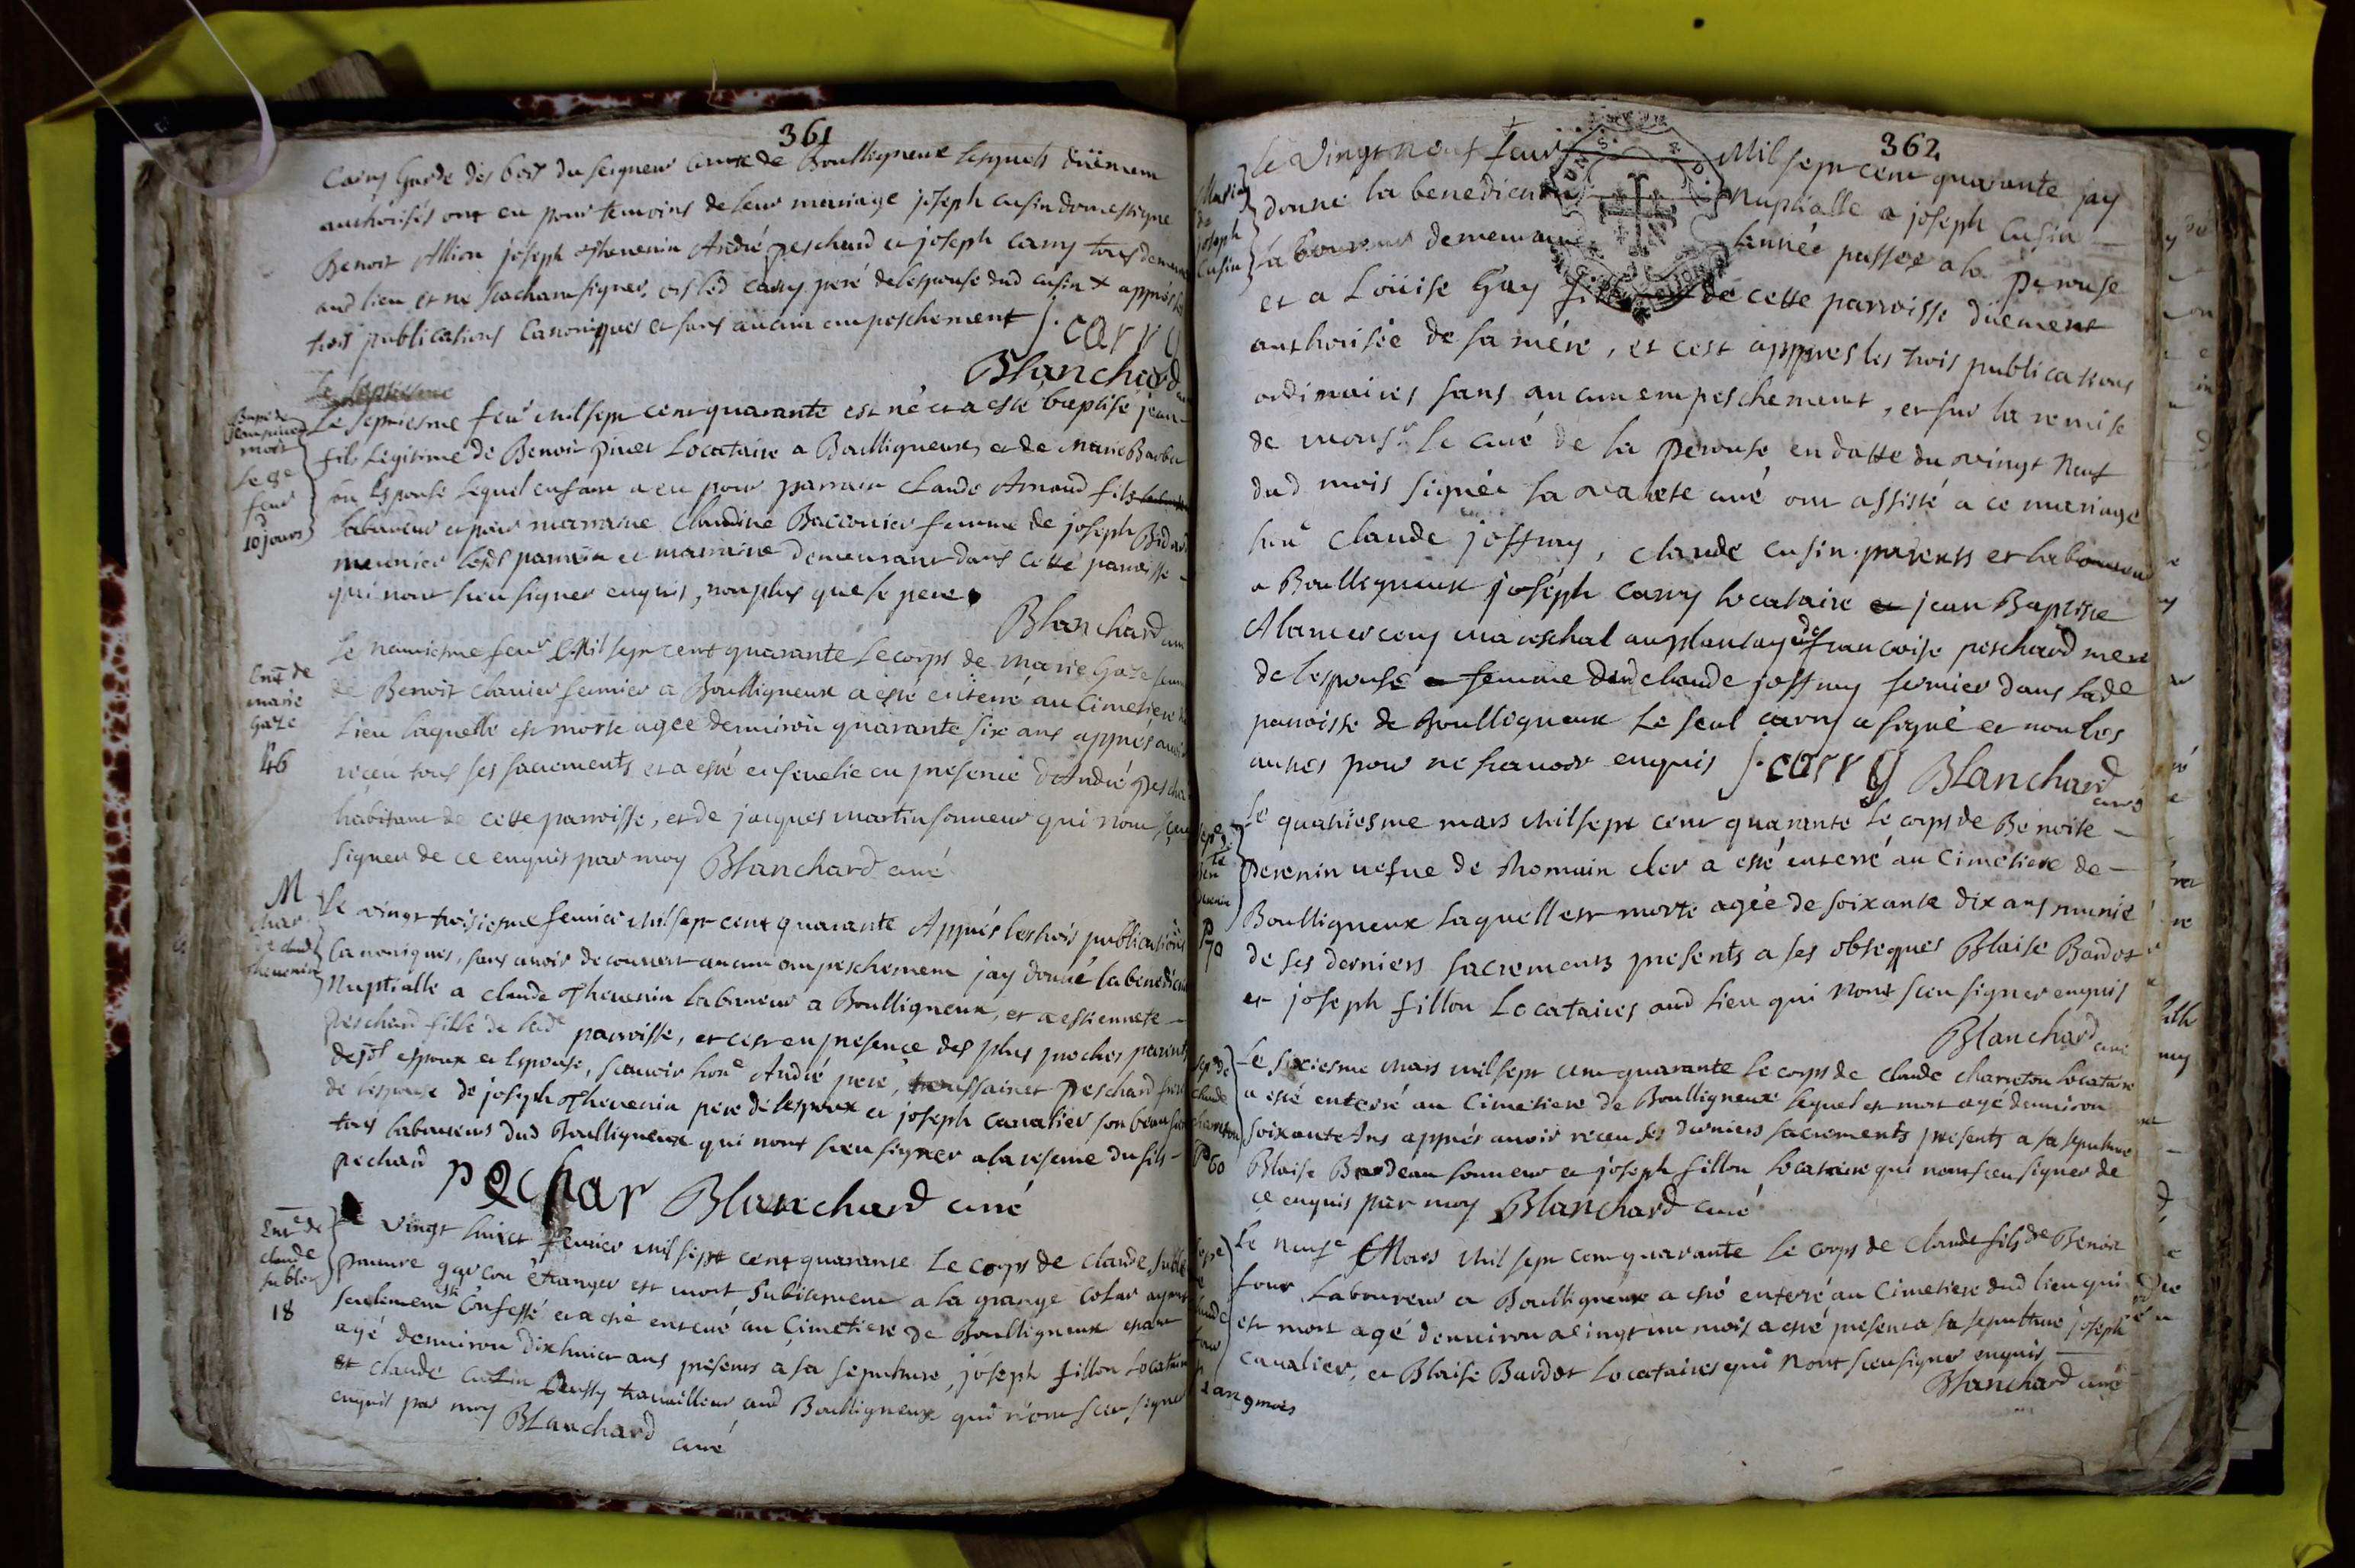 361
Carry Garde des bois du seigneur comte de Boulligneux lesquels düement
authorisés ont eu pour temoins de leur mariage joseph cusin domestique
Benoit Allion joseph Thevenin André peschard et joseph carry tous demeur
aud lieu et ne sachant signer, ors led carry peré de lespouse dud cusin + apprés les
trois publications Canoniques et sans aucun empeschement J. carry
Blanchard
Le septiesme
Bapt de
jean pivet
mort
le 8e
feur
10 jours
Le septiesme feur mil sept cent quarante est né et a esté baptisé jean
fils legitime de Benoit pivet Locataire a Boulligneux, et de marie Barbe
son Espouse lequel enfant a eu pour parrain Claude Arnaud fils
laboureur et pour marraine Claudine Bacconier femme de joseph Bidard
meunier lesds parrain et marraine demeurant dans cette parroisse
qui nont sceu signer enquis, non plus que le pere
Blanchard curé
Ent de
marie
Gaze
46
Le neuviesme feur Mil sept cent quarante Le corps de marie Gaze femme
de Benoit Clavier fermier a Boulligneux a esté enterré au Cimetiere du
Lieu laquelle est morte agée denviron quarante six ans apprés avoir
receu tous ses sacrements et a esté ensevelie en presence d'André pescha
habitant de cette parroisse, et de jacques martin sonneur qui nont sceu
signer de ce enquis par moy Blanchard curé
M
Mar
de claude
thevenin
Le vingt troisiesme fevrier mil sept cent quarante Apprés les trois publications
Canoniques, sans avoir decouvert aucun empeschement jay donné la benediction
Nuptialle a claude Thevenin laboureur a Boulligneux, et a estiennete
peschard fille de lade parroisse, et cest en presence des plus proches parents
desds espoux et Espouse, scavoir hone André peré, toussainet peschard frere
de lespouse de joseph Thevenin pere de lespoux et joseph cavalier son beaufrere
tous laboureurs dud Boulligneux qui nont sceu signer a la reserve du fils
pechard pechar Blanchard curé
Ent de
claude
sublon
18
Le vingt huict fevrier mil sept cent quarante Le corps de claude subl
pauvre garcon étranger est mort subitement a la grange colar ayant
seulement esté Confessé et a esté enterré au Cimetiere de Boulligneux estant
agé denviron dixhuict ans presents a sa sepulture, joseph fillon Locataire
et claude travailleur aud Boulligneux qui nont sceu signer
enquis par moy Blanchard curé
362
Mari
de
joseph
Cusin
Le vingt neuf feur Mil sept cent quarante jay
donne la benediction Nuptialle a joseph Cusin
Laboureur demeurant l'année passée a la Perouse
et a Loüise Gay fille de cette parroisse düement
authorisée de sa mére, et cest apprés les trois publications
ordinaires sans aucun empeschement, et sur la remise
de monsr le curé de la perouse en datte du vingt neuf
dud mois signée curé ont assisté a ce mariage
claude joffray, claude cusin parents et laboureur
a Boulligneux joseph carry locataire et jean Baptiste
mareschal au plantay de francoise peschard mere
de lespouse femme dud claude joffray fermier dans lade
parroisse de Boulligneux le seul carry a signé et non les
autres pour ne scavoir enquis J. carry Blanchard
curé
70
Le quatriesme mars mil sept cent quarante le corps de Benoite
perenin vefve de Romain cler a esté enterré au Cimetiere de
Boulligneux laquell est morte agée de soixante dix ans munié
de ses derniers sacrements presents a ses obseques Blaise Bardot
et joseph fillon Locataires aud lieu qui nont sceu signer enquis
Blanchard curé
sep de
claude
chareton
60
Le sixiesme mars mil sept cent quarante le corps de claude chareton locataire
a esté enterré au Cimetiere de Boulligneux lequel est mort agé denviron
soixante Ans apprés avoir receu ses derniers sacrements presents a sa sepulture
Blaise Bardeau sonneur et joseph fillon locataire qui nont sceu signer de
ce enquis par moy Blanchard curé
1 an 9 mois
Le neufe Mars mil sept cent quarante le corps de claude fils de Benoit
four Laboureur a Boulligneux a esté enterré au Cimetiere dud lieu qui
est mort agé denviron vingt un mois a esté present a sa sepulture joseph
Cavalier, et Blaise Bardot Locataires qui nont sceu signer enquis
Blanchard curé